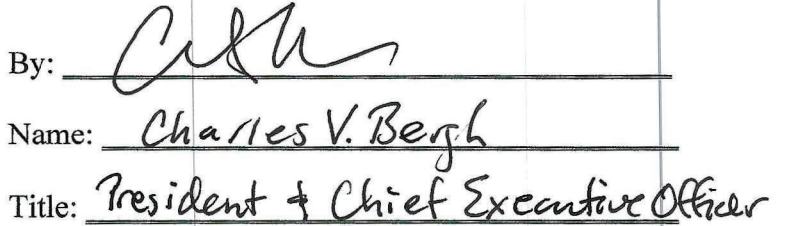 By:
Name: Charles V. Bergh
Title: President & Chief Executive Officer